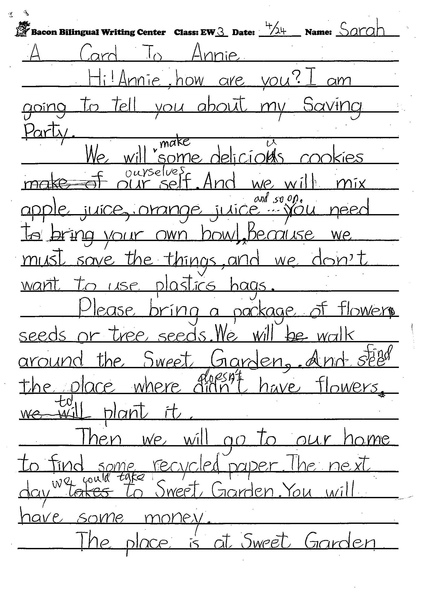 Bacon Bilingual Writing Center Class: EW 3 Date: 4/24 Name: Sarah
A Card To Annie
Hi! Annie, how are you? I am
going to tell you about my Saving
Party.
make u
We will some delicious cookies
ourselves
make of our self. And we will mix
and so on.
apple juice, orange juice ... You need
to bring your own bowl, Because we
must save the things, and we don't
want to use plastics bags.
Please bring a package of flower
seeds or tree seeds. We will be walk
find
around the Sweet Garden, And see
doesn't
the place where didn't have flowers,
to
we will plant it.
Then we will go to our home
to find some recycled paper. The next
we could take
day takes to Sweet Garden. You will
have some money.
The place is at Sweet Garden